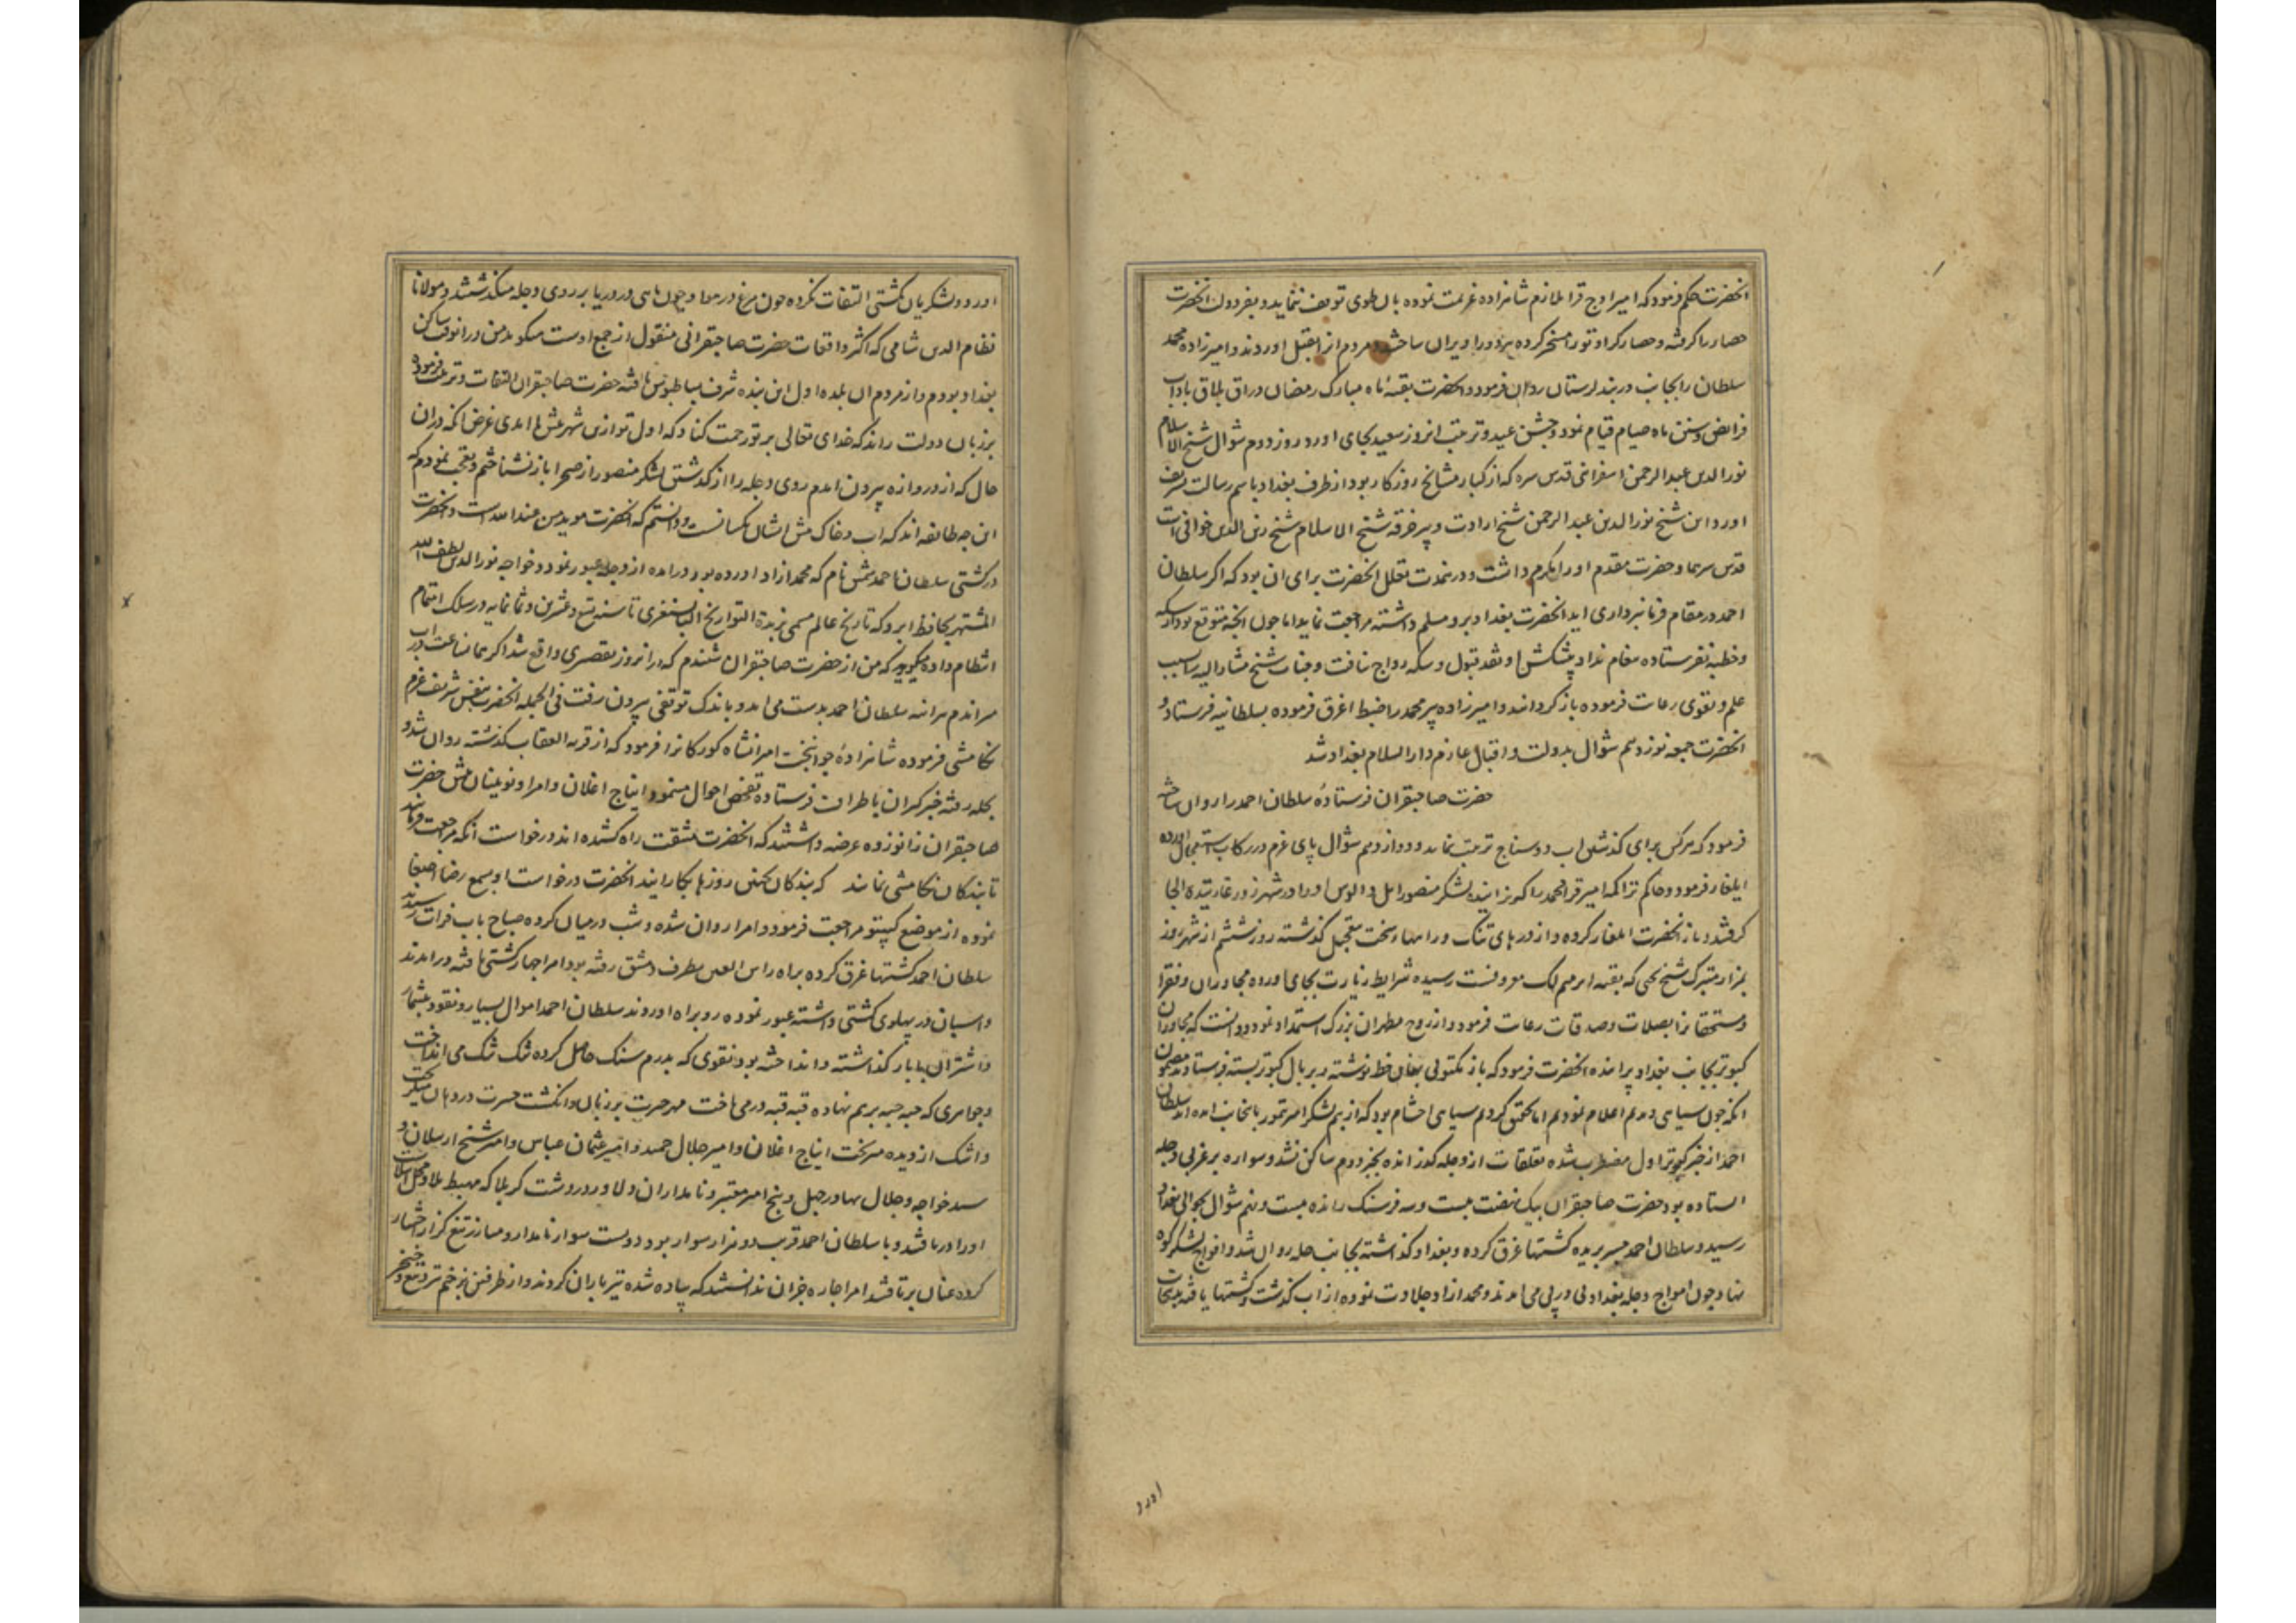 انحضرت حکم فرمود که امیر اوج قرا ملازم شاهزاده عزیمت نموده بان طوی توقف ننماید و بفردون انحضرت
حصار را گرفته و حصار کراوتو را مسخر کرده بزودی ویران ساختند و مردم از انقبل اوردند و امیرزاده محمد
سلطان را بجانب دربند لرستان روان فرمود و انحضرت بقیه ماه مبارک رمضان در اق بلاق باداب
فرایض و سنن ماه صیام قیام نمود و جشن عید و ترتیب انروز سعید بجای اورد و روز دوم شوال شیخ الاسلام
نور الدین عبد الرحمن اسفراینی قدس سره که از کبار مشایخ روزکار بود از طرف بغداد باسم رسالت تشریف
اورد و این شیخ نور الدین عبد الرحمن شیخ ارادت و پیر خرقه شیخ الاسلام شیخ زین الدین خوافی است
قدس سرهما و حضرت مقدم او را مکرم داشت و انحضرت برای ان بود که اکر سلطان
احمد در مقام فرمانبرداری اید انحضرت بغداد برو مسلم داشته مراجعت نماید اما چون انچه متوقع بود از سکه
و خطبه نفرستاده بود پیشکش او نقد قبول و سکه رواج نیافت و جناب شیخ مشار الیه را بسبب
علم و تقوی رعایت فرموده باز کردانید و امیرزاده پیر محمد را ضبط اغرق فرموده بسلطانیه فرستاد و
انحضرت جمعه نوزدهم شوال بدولت و اقبال عازم دار السلام بغداد شد
حضرت صاحبقران فرستاده سلطان احمد را روان ساخته
فرمود که هر کس برای کذشتن اب دو سناج ترتیب نماید و دوازدهم شوال پای عزم در رکاب استعجال اورده
ایلغار فرمود و حاکم تراکمه امیر قرا محمد را کریزانیده لشکر منصور ایل و الوس او را در شهرزور غارتیده الجا
کرفتند و باز انحضرت ایلغار کرده و از درهای تنک و راهها سخت بتعجیل کذشته روز ششم از شهرزور
بمزار متبرک شیخ یحیی که بقبه ابرهیم لک معروفست رسیده شرایط زیارت بجای اورده مجاوران و فقرا
و مستحقانرا بصلات و صدقات رعایت فرمود و از روح مطهر ان بزرک استمداد نمود و دانست که مجاوران
کبوتر بجانب بغداد پرانده انحضرت فرمود که باز مکتوبی بهمان خط نوشته در بال کبوتر بسته فرستادند مضمون
انکه چون سیاهی دیدیم اعلام نمودیم اما تحقیق کردیم سیاهی احشام بود که از بیم لشکر امیر تیمور باینجانب امده اند سلطان
احمد از خبر کبوتر اول مضطرب شده تعلقات از دجله کذرانده بخبر دوم ساکن نشد و سواره بر غربی دجله
ایستاده بود حضرت صاحبقران بیک نهضت بیست و سه فرسنک رانده بیست و نهم شوال بحوالی بغداد
رسید و سلطان احمد جسر بریده کشتیها غرق کرده و بغداد کذاشته بجانب حله روان شد و افواج لشکر کوه
نهاد چون امواج دجله بغداد پی در پی می امدند و محمد ازاد جلادت نموده از اب کذشت و کشتیها یافته بدینجانب
اورد
اورد و لشکریان بکشتی التفات نکرده چون مرغ در هوا و چون ماهی در دریا بر روی دجله میکذشتند و مولانا
نظام الدین شامی که اکثر واقعات حضرت صاحبقرانی منقول از جمع اوست میکوید من در انوقت ساکن
بغداد بودم و از مردم ان بلده اول این بنده شرف بساطبوس یافته حضرت صاحبقران التفات و تربیت فرمود و
بر زبان دولت راند که خدای تعالی بر تو رحمت کناد که اول تو ازین شهر پیش ما امدی غرض انکه در ان
حال که از دروازه بیرون امدم روی دجله را از کذشتن لشکر منصور از صحرا باز نشناختم و تعجب نمودم که
این چه طایفه اند که اب و خاک پیش ایشان یکسانست و دانستم که انحضرت مؤید من عند الله است و انحضرت
در کشتی سلطان احمد شمس نام که محمد ازاد اورده بود درامده از دجله عبور نمود و خواجه نور الدین لطف الله
المشتهر بحافظ ابرو که تاریخ عالم مسمی بزبدة التواریخ البایسنغری تا سنه تسع و عشرین و ثمانمایه در سلک اتمام
انتظام داده میکوید که من از حضرت صاحبقران شنیدم که در انروز تقصیری واقع شد اکر همان ساعت در اب
میراندم هراینه سلطان احمد بدست می امد و باندک توقفی بیرون رفت فی الجمله انحضرت بنفس شریف عزم
تکامشی فرموده شاهزاده جوانبخت امیرانشاه کورکانرا فرمود که از قریه العقاب کذشته روان شد و
بحله رفته خبرکیران باطراف فرستاده تفحص احوال مینمود ایباج اغلان و امرا و نوینان پیش حضرت
صاحبقران زانوزده عرضه داشتند که انحضرت مشقت راه کشیده اند درخواست انکه مراجعت فرمایند
تا بندکان تکامشی نمایند که بندکان چنین روزها بکار ایند انحضرت درخواست او بسمع رضا اصغا
نموده از موضع کپیتو مراجعت فرمود و امرا روان شده و شب در میان کرده صباح باب فرات رسیدند
سلطان احمد کشتیها غرق کرده براه راس العین بطرف دمشق رفته بود امرا چهار کشتی یافته درامدند
و اسبان در پهلوی کشتی داشته عبور نموده رو براه اوردند سلطان احمد اموال بسیار و نقود بیشمار
و اشتران با بار کذاشته و انداخته بود نقودی که بدرم سنک حاصل کرده تنک تنک می انداخت
و جواهری که حبه حبه بر هم نهاده قبه قبه در می باخت مهر حیرت بر زبان و انکشت حسرت در دهان میکرفت
و اشک از دیده میریخت ایباج اغلان و امیر جلال حمید و امیر عثمان عباس و امیر شیخ ارسلان و
سید خواجه و جلال بهادر جبل و پنج امیر معتبر و نامداران دلاور در دشت کربلا که مهبط بلا و محل ابتلاست
او را دریافتند و با سلطان احمد قریب دو هزار سوار بود دویست سوار نامدار و مبارز تیغ کزار اختیار
کرده عنان برتافتند امرا چاره جز ان ندانستند که پیاده شده تیرباران کردند و از طرفین بزخم تیر و تیغ و خنجر